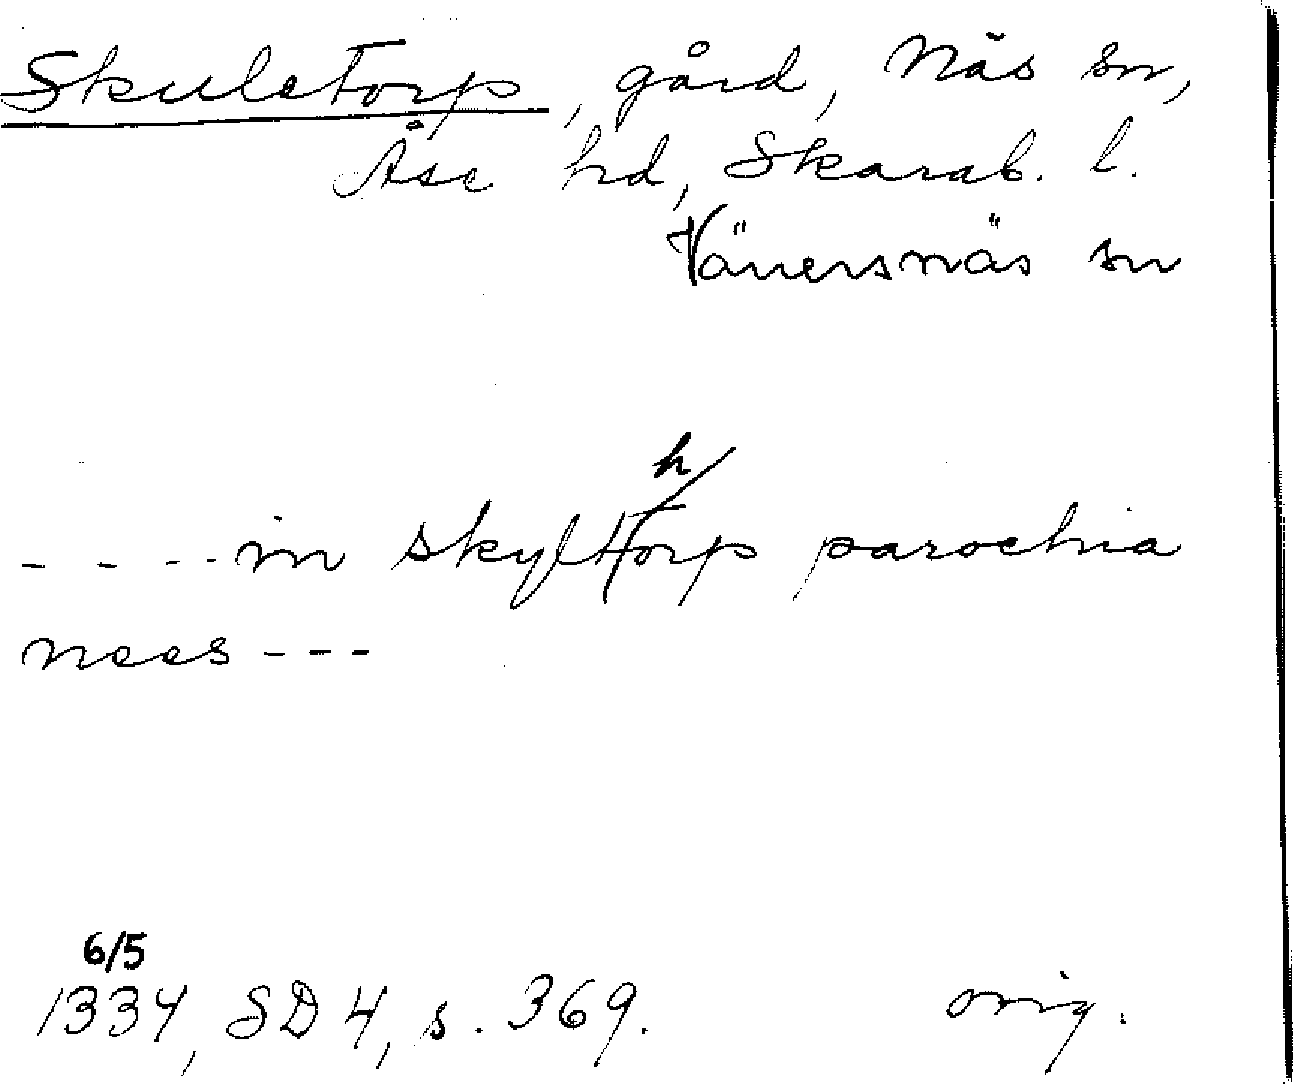 Skuletorp, gård, Näs sn,
Åse hd, Skarab. l.
Vänersnäs sn
h
- - - - in skyltorp parochia
nees - - -
6/5
1334, SD 4, s. 369. orig.